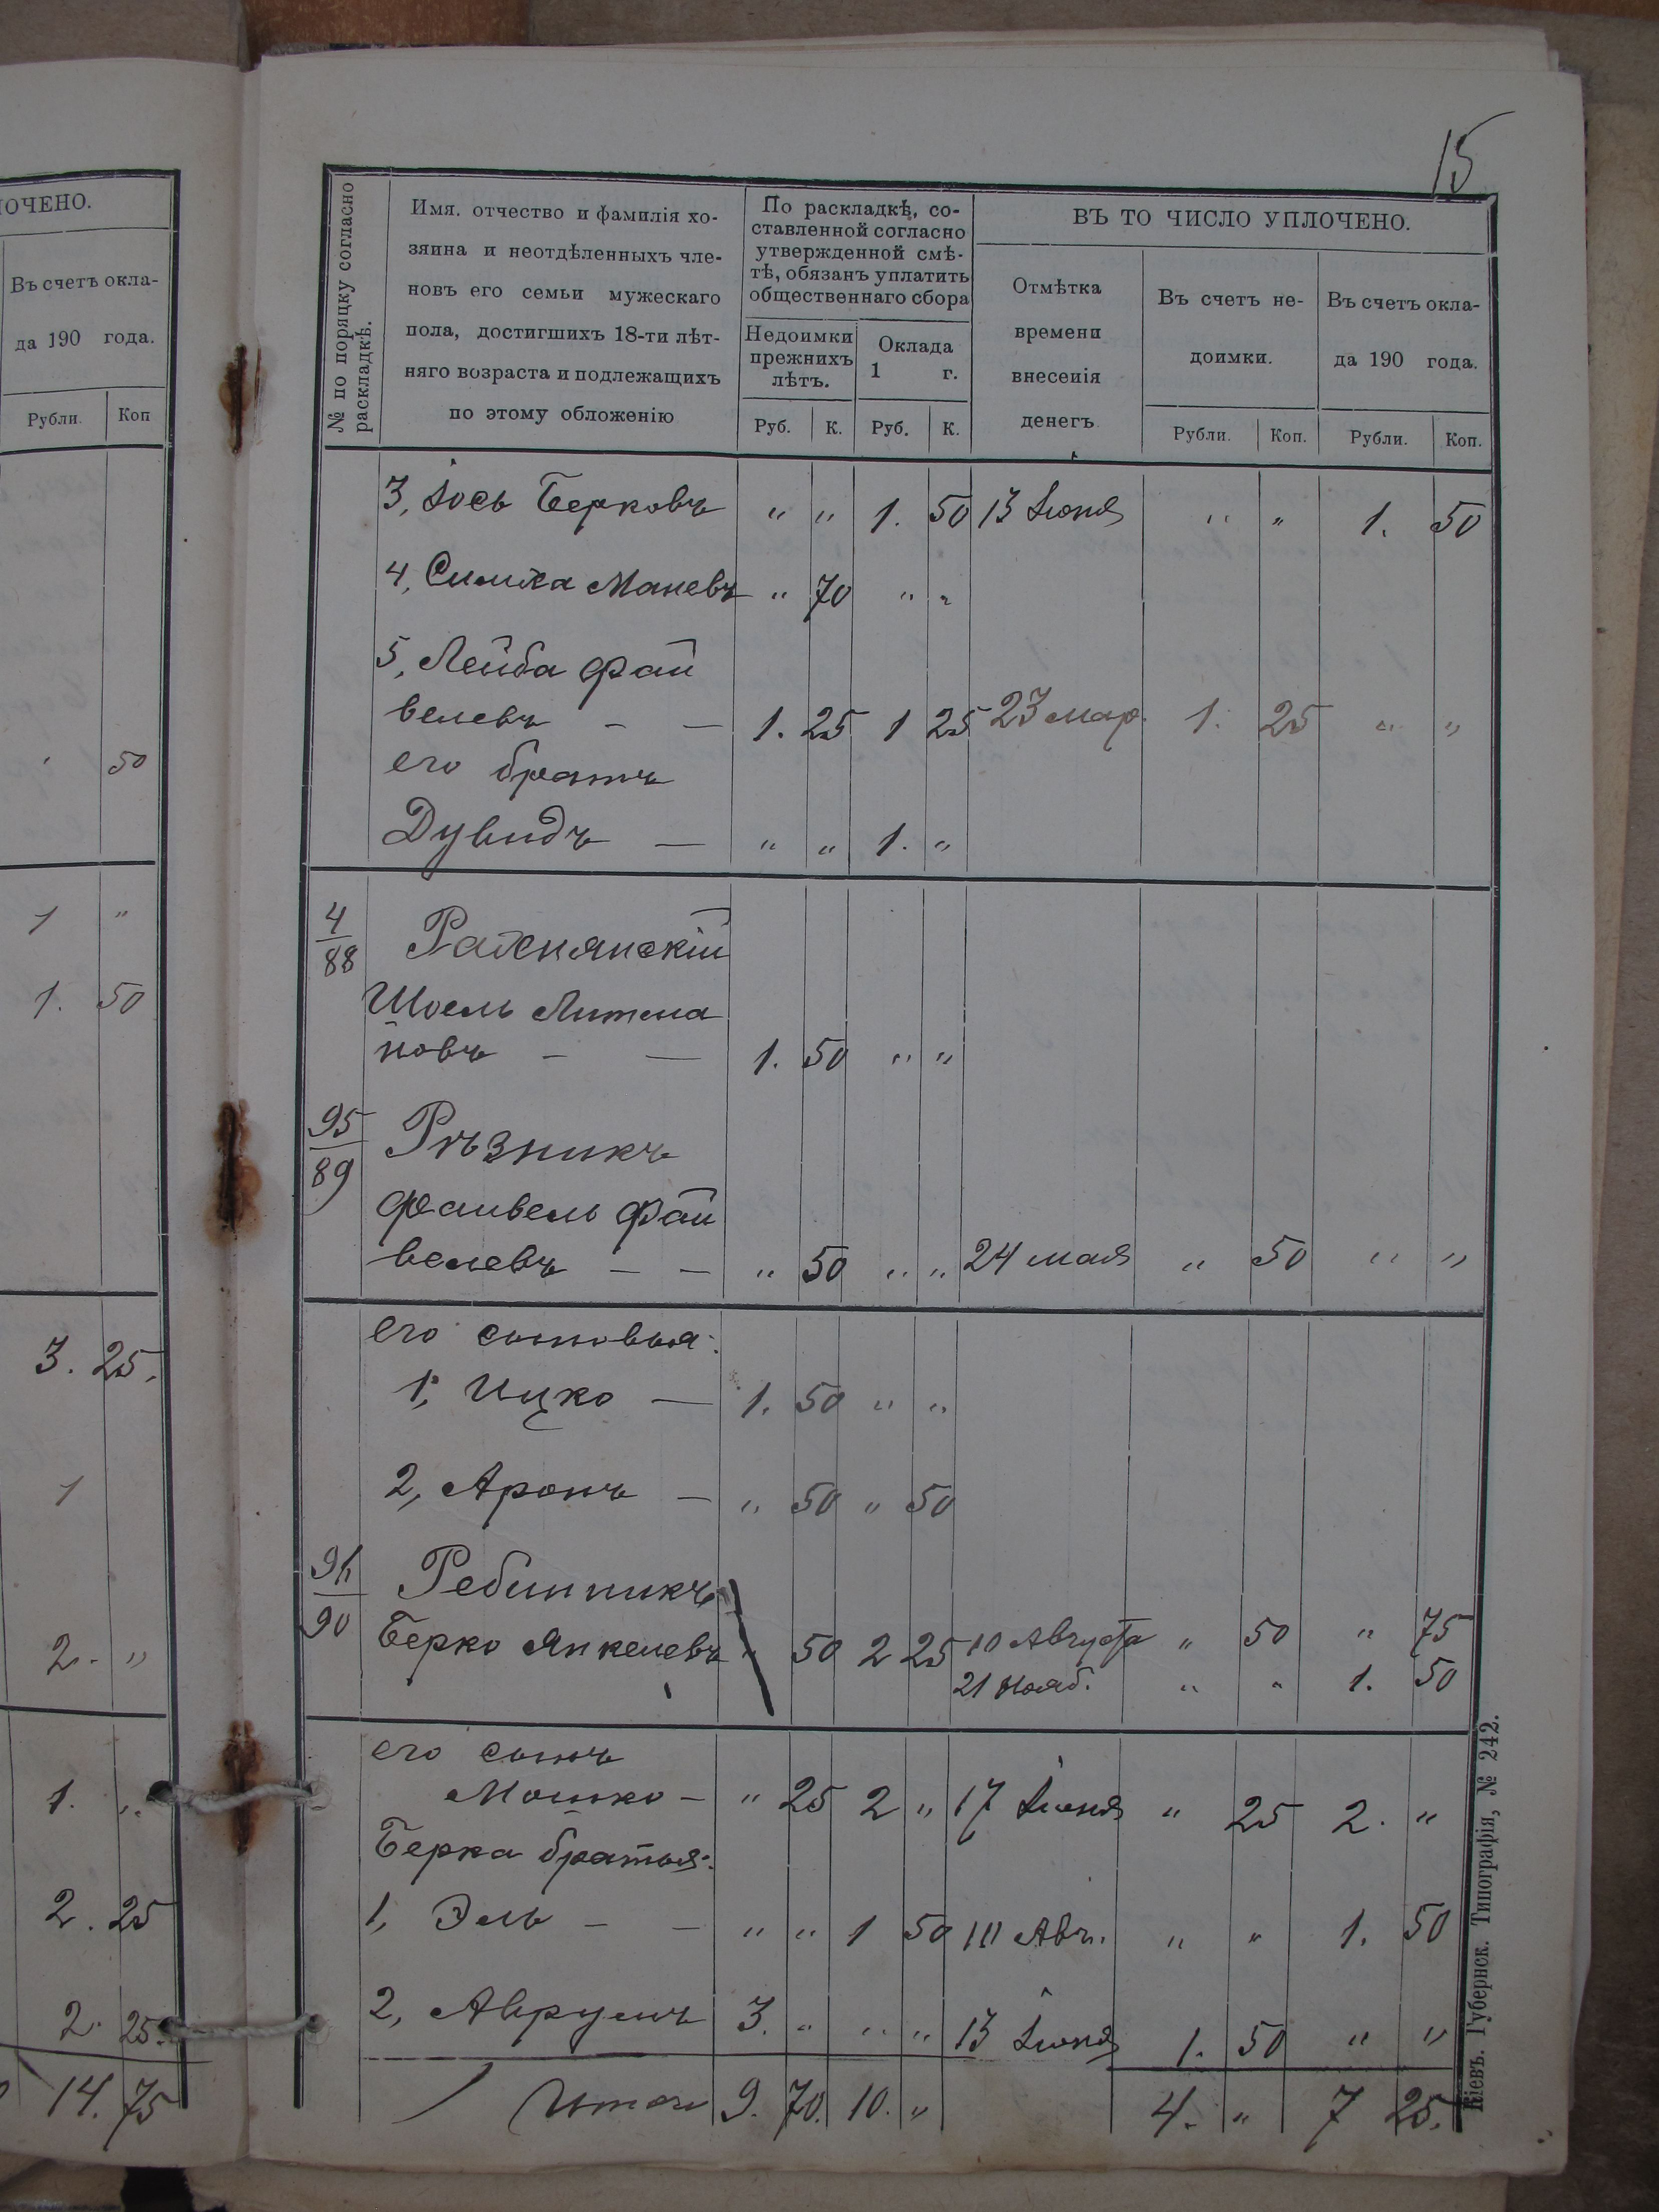 ЛОЧЕНО.
Въ счетъ окла-
да 190 года.
Рубли. Коп
" 50
1 "
1. 50
3. 25.
1
2. "
1. "
2. 25
2. 25.
14. 75
15
№ по поряцку согласно
раскладкѣ.
Имя. отчество и фамилія хо-
зяина и неотдѣленныхъ чле-
новъ его семьи мужескаго
пола, достигшихъ 18-ти лѣт-
няго возраста и подлежащихъ
по этому обложенію
По раскладкѣ, со-
ставленной согласно
утвержденной смѣ-
тѣ, обязанъ уплатить
общественнаго сбора
Недоимки
прежнихъ
лѣтъ.
Оклада
1 г.
Руб. К. Руб. К.
ВЪ ТО ЧИСЛО УПЛОЧЕНО.
Отмѣтка
времени
внесенія
денегъ
Въ счетъ не-
доимки.
Въ счетъ окла-
да 190 года.
Рубли. Коп. Рубли. Коп.
3, Іось Берковъ " " 1. 50 13 Іюня " " 1. 50
4, Симха Маневъ " 70 " "
5, Лейба Фай
велевъ — — 1. 25 1 25 23 мар. 1. 25 " "
его братъ
Дувидъ — " " 1. "
4/88 Рахнянскій
Шоель Литма
новъ — — 1. 50 " "
95/89 Рѣзникъ
Файвель Фай
велевъ — — " 50 " " 24 мая " 50 " "
его сыновья:
1, Ицко — 1. 50 " "
2, Аронъ — " 50 " 50
96/90 Ребинникъ
Берко Янкелевъ " 50 2 25 10 Августа " 50 " 75
21 Нояб. " " 1. 50
его сынъ
Мошко — " 25 2 " 17 Іюня " 25 2. "
Берка братья:
1, Эль — — " " 1 50 10 Авг. " " 1. 50
2, Аврумъ 3. " " " 13 Іюня 1. 50 " "
Итого 9. 70. 10. " 4. " 7 25.
Кіевъ. Губернск. Типографія, № 242.